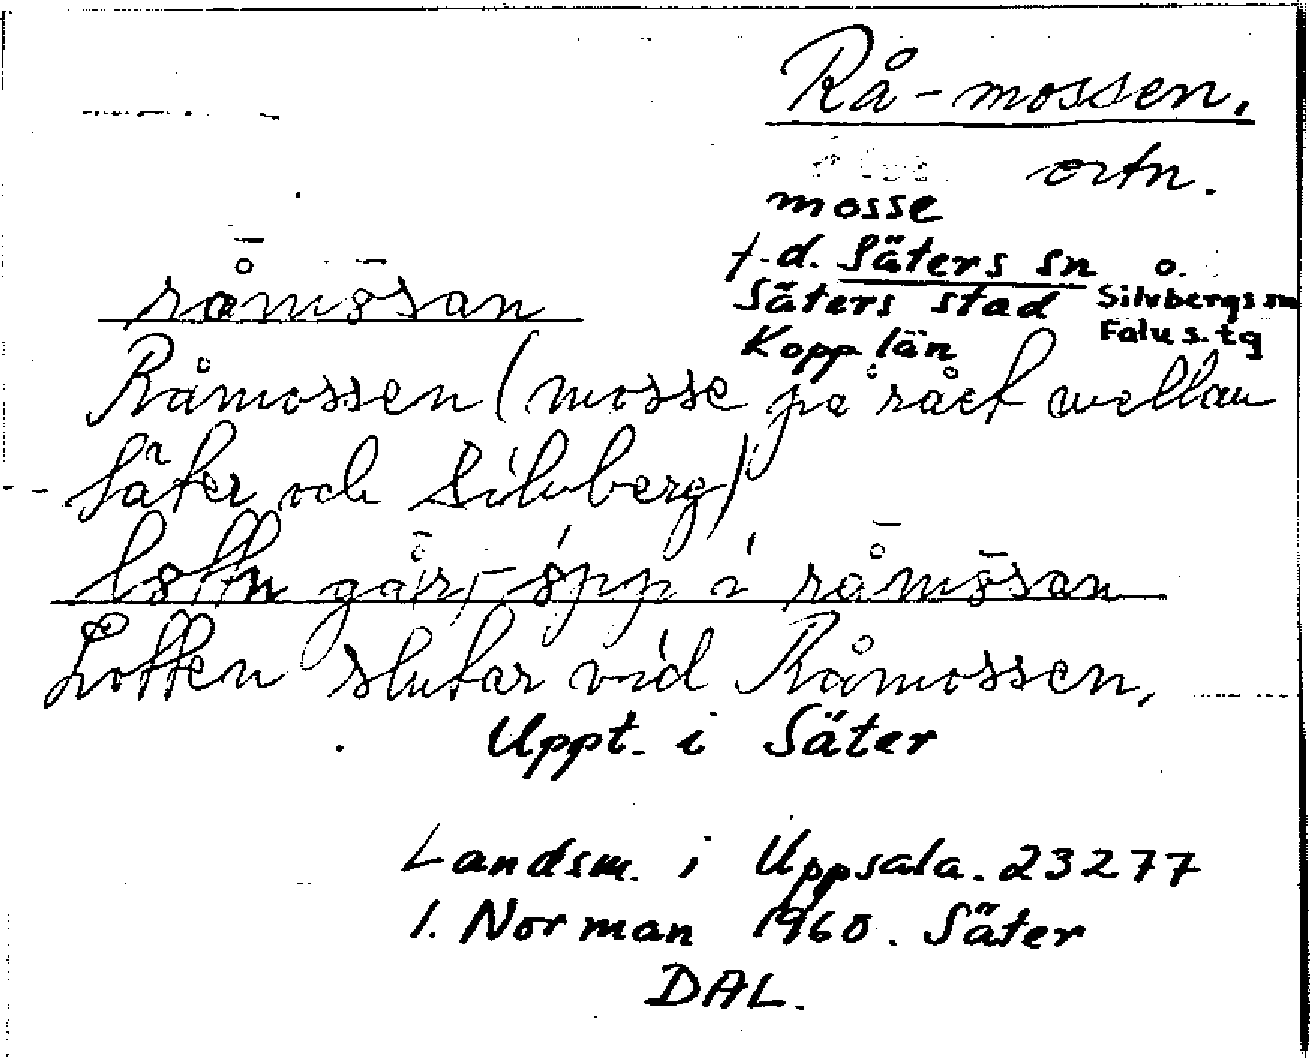 Rå-mossen.
ortn.
mosse
f.d. Säters sn o.
Säters stad Silvbergs sn
Kopp. län Falu s. tg
råmōsan
Råmossen (mosse på rået mellan
Säter och Silvberg)
lottn går opp i råmōsan
Lotten slutar vid Råmossen.
Uppt. i Säter
Landsm. i Uppsala. 23277
I. Norman 1960. Säter
DAL.